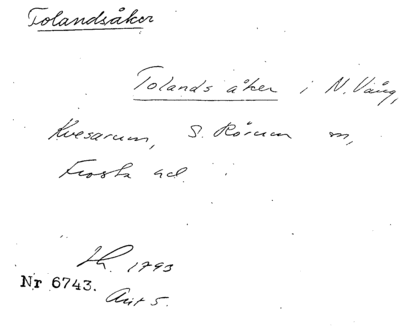 Tolandsåker
Tolands åker i N. Vång,
Kvesarum, S. Rörum sn,
Frosta hd.
Sk. 1793
Nr 6743.
Akt 5.